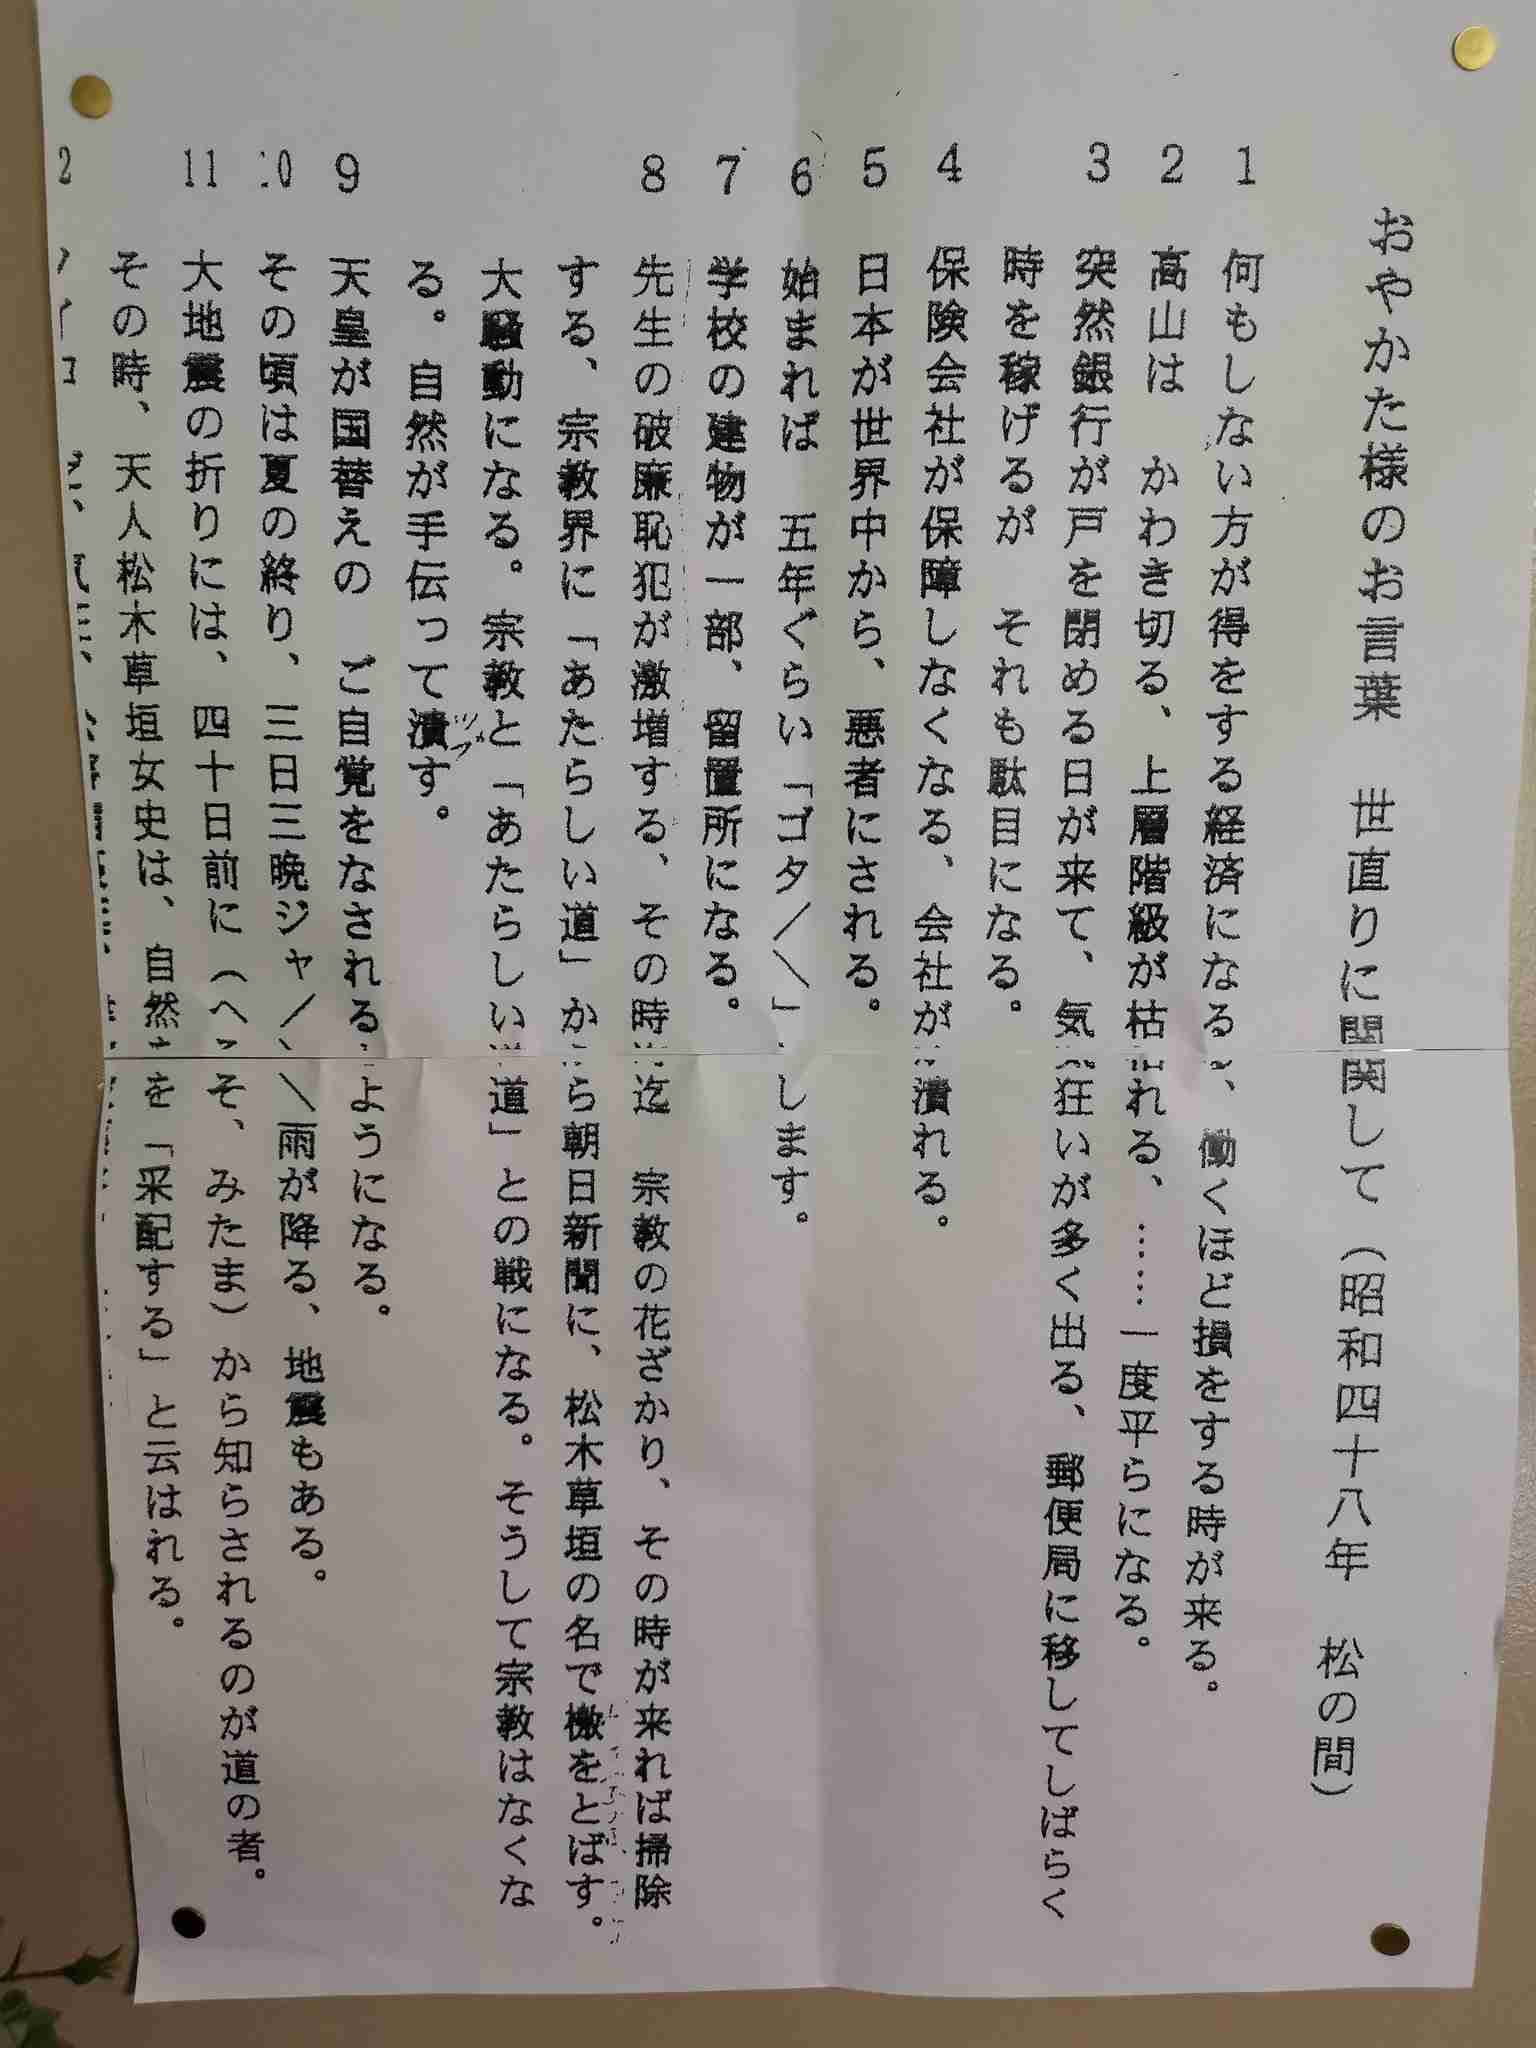 おやかた様のお言葉　世直りに関して（昭和四十八年　松の間）
1　何もしない方が得をする経済になる、働くほど損をする時が来る。
2　高山は　かわき切る、上層階級が枯れる、……一度平らになる。
3　突然銀行が戸を閉める日が来て、気狂いが多く出る、郵便局に移してしばらく
時を稼げるが　それも駄目になる。
4　保険会社が保障しなくなる、会社が潰れる。
5　日本が世界中から、悪者にされる。
6　始まれば　五年ぐらい「ゴタ／＼」します。
7　学校の建物が一部、留置所になる。
8　先生の破廉恥犯が激増する、その時迄　宗教の花ざかり、その時が来れば掃除
する、宗教界に「あたらしい道」から朝日新聞に、松木草垣の名で檄をとばす。
大騒動になる。宗教と「あたらしい道」との戦になる。そうして宗教はなくな
る。自然が手伝って潰す。
ツブ
9　天皇が国替えの　ご自覚をなされるようになる。
10　その頃は夏の終り、三日三晩ジャ／＼雨が降る、地震もある。
11　大地震の折りには、四十日前に（へそ、みたま）から知らされるのが道の者。
その時、天人松木草垣女史は、自然を「采配する」と云はれる。
2